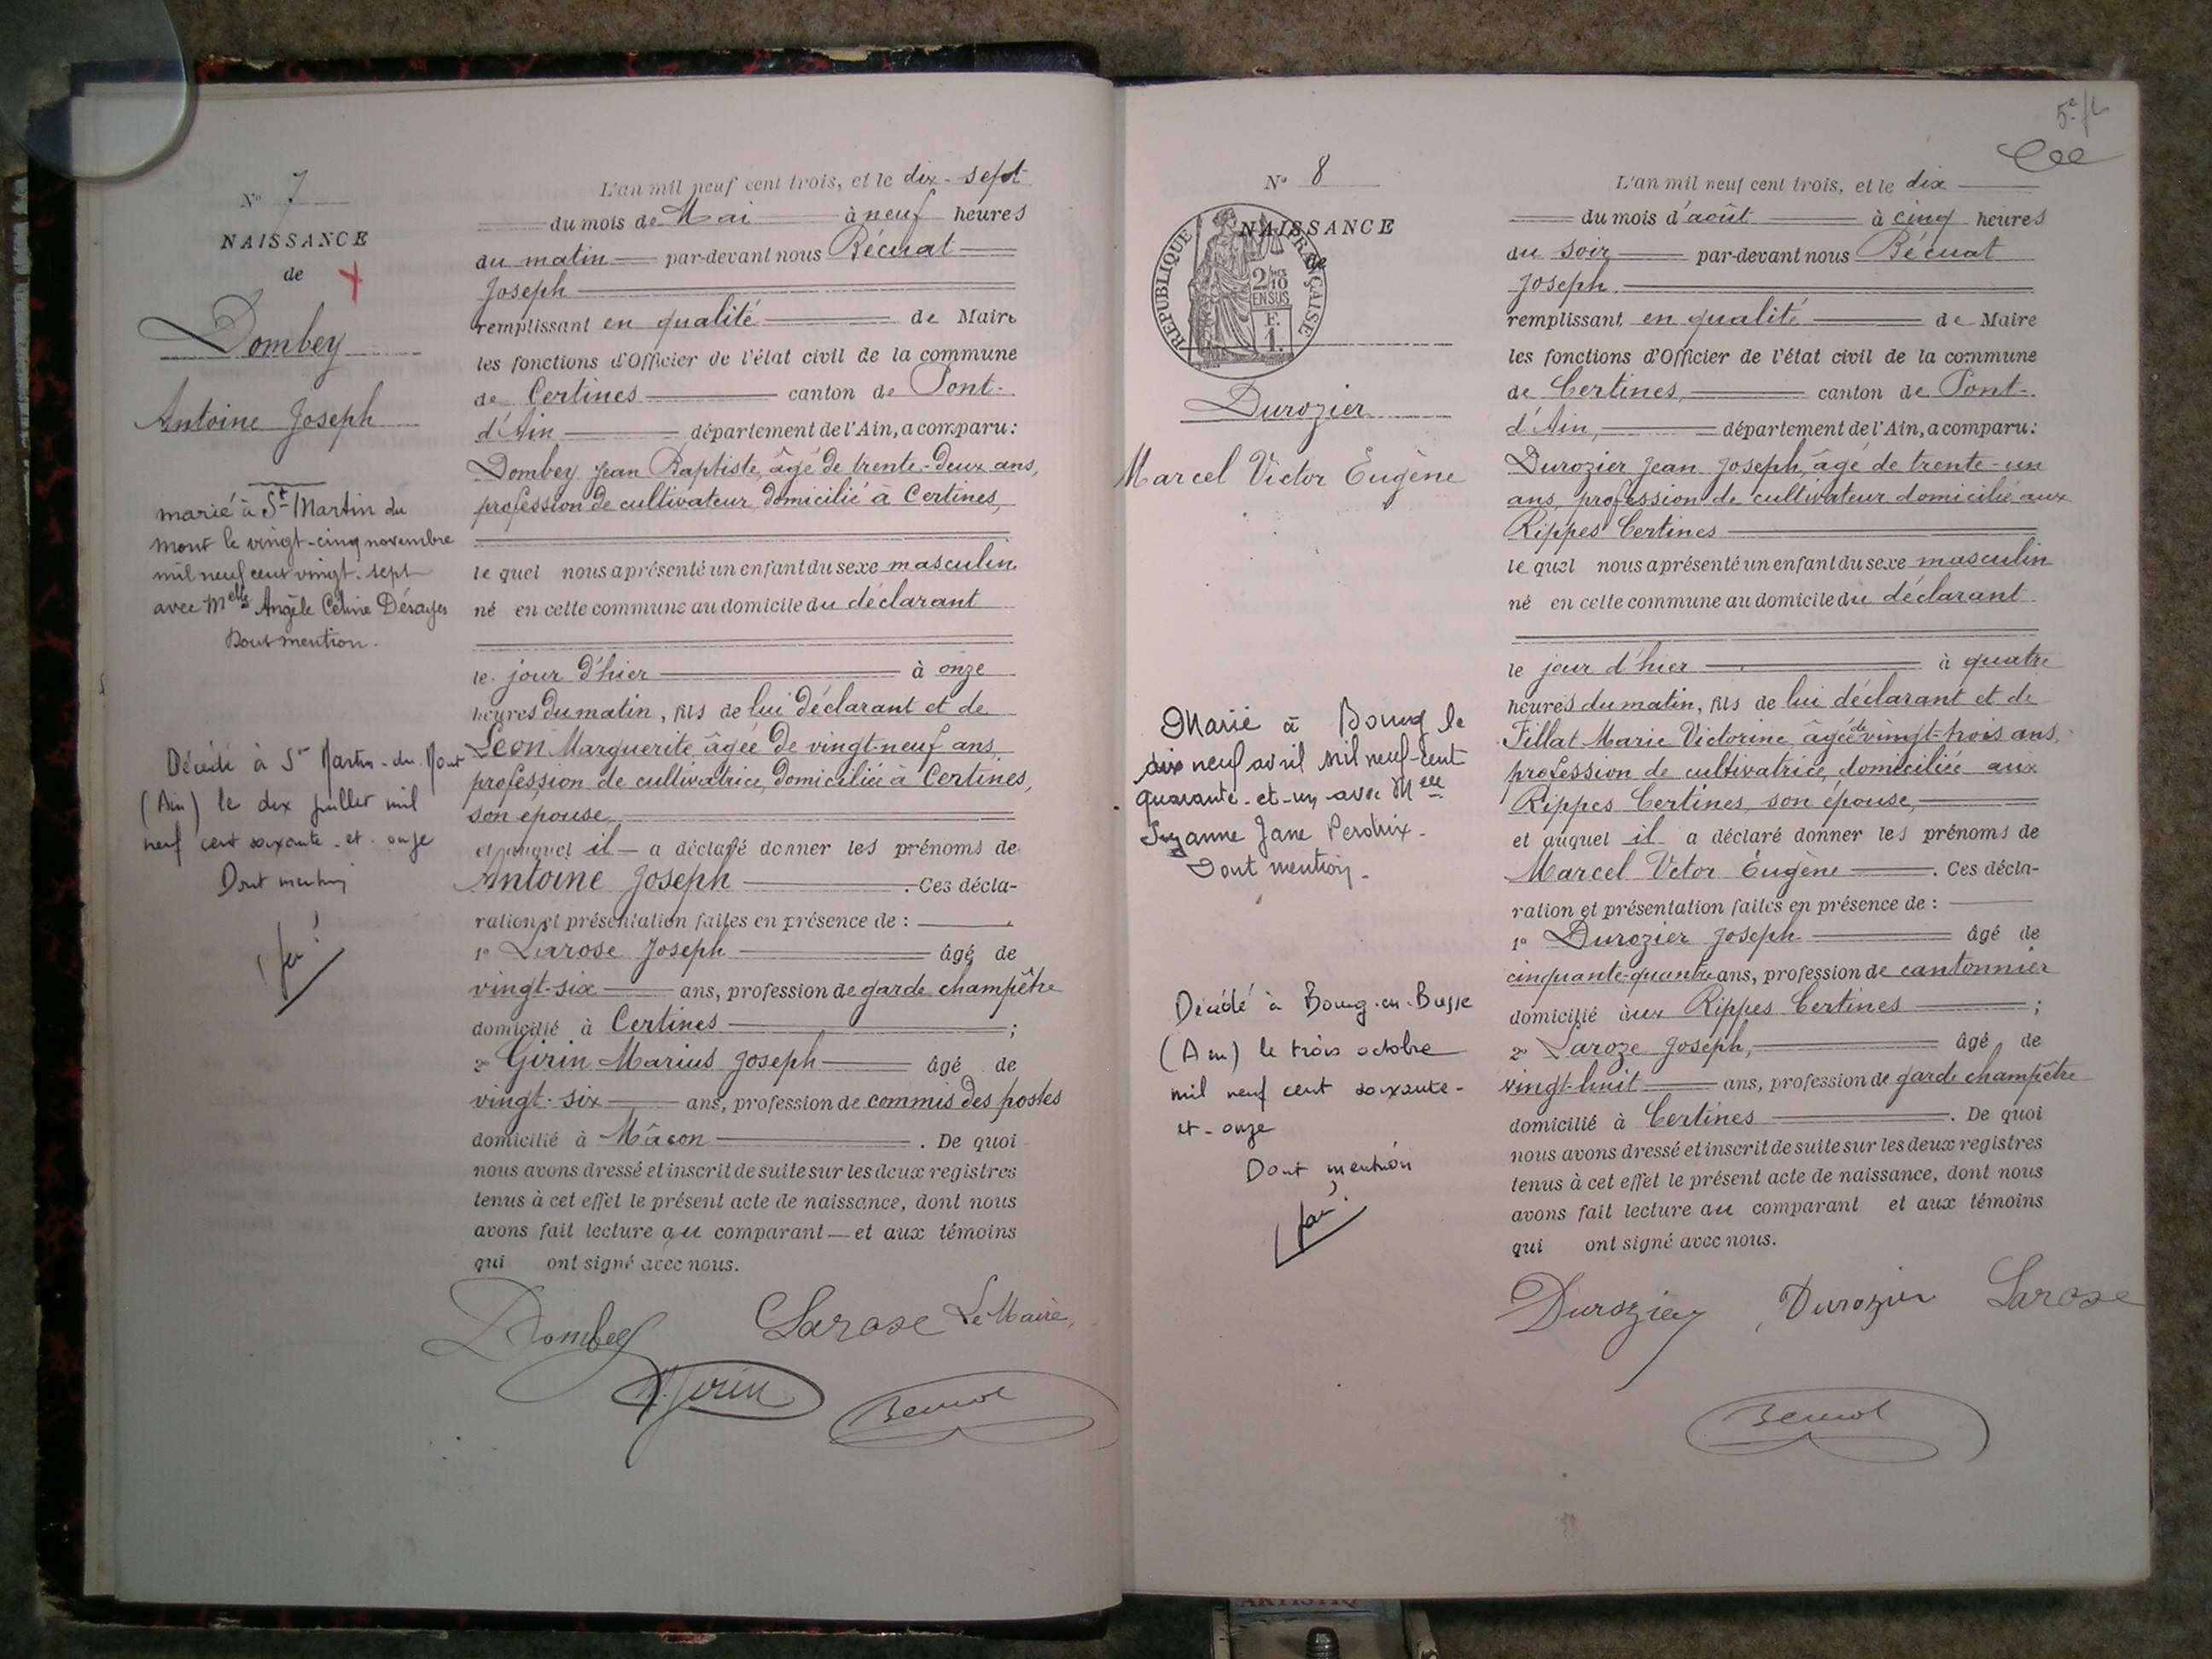 N° 7
NAISSANCE
de
Dombey
Antoine Joseph
marié à St Martin du
Mont le vingt-cinq novembre
mil neuf cent vingt-sept
avec Melle Angèle Céline Désayes
Dont mention.
Décédé à St Martin-du-Mont
(Ain) le dix juillet mil
neuf cent soixante-et-onze
Dont mention
L'an mil neuf cent trois, et le dix-sept
du mois de Mai à neuf heures
du matin par-devant nous Bécuat
Joseph
remplissant en qualité de Maire
les fonctions d'Officier de l'état civil de la commune
de Certines canton de Pont-
d'Ain département de l'Ain, a comparu :
Dombey Jean Baptiste, âgé de trente-deux ans,
profession de cultivateur, domicilié à Certines,
le quel nous a présenté un enfant du sexe masculin
né en cette commune au domicile du déclarant
le jour d'hier à onze
heures du matin, fils de lui déclarant et de
Léon Marguerite âgée de vingt-neuf ans,
profession de cultivatrice, domiciliée à Certines,
son épouse,
et auquel il a déclaré donner les prénoms de
Antoine Joseph . Ces décla-
ration et présentation faites en présence de :
1° Larose Joseph âgé de
vingt-six ans, profession de garde champêtre
domicilié à Certines ;
2° Girin Marius Joseph âgé de
vingt-six ans, profession de commis des postes
domicilié à Mâcon . De quoi
nous avons dressé et inscrit de suite sur les deux registres
tenus à cet effet le présent acte de naissance, dont nous
avons fait lecture au comparant et aux témoins
qui ont signé avec nous.
Dombey Larose Le Maire,
M. Girin Bécuat
5e f
N° 8
NAISSANCE
de
RÉPUBLIQUE FRANÇAISE
2/10
EN SUS
F.
1.
Durozier
Marcel Victor Eugène
Marié à Bourg le
dix neuf avril mil neuf-cent
quarante-et-un avec Melle
Suzanne Jane Perdrix.
Dont mention.
Décédé à Bourg-en-Bresse
(Ain) le trois octobre
mil neuf cent soixante-
et-onze
Dont mention
L'an mil neuf cent trois, et le dix
du mois d'août à cinq heures
du soir par-devant nous Bécuat
Joseph
remplissant en qualité de Maire
les fonctions d'Officier de l'état civil de la commune
de Certines, canton de Pont-
d'Ain, département de l'Ain, a comparu :
Durozier Jean Joseph, âgé de trente-un
ans, profession de cultivateur domicilié aux
Rippes Certines
le quel nous a présenté un enfant du sexe masculin
né en cette commune au domicile du déclarant
le jour d'hier à quatre
heures du matin, fils de lui déclarant et de
Fillat Marie Victorine, âgée de vingt-trois ans,
profession de cultivatrice, domiciliée aux
Rippes Certines, son épouse,
et auquel il a déclaré donner les prénoms de
Marcel Vctor Eugène . Ces décla-
ration et présentation faites en présence de :
1° Durozier Joseph âgé de
cinquante-quatre ans, profession de cantonnier
domicilié aux Rippes Certines ;
2° Laroze Joseph, âgé de
vingt-huit ans, profession de garde champêtre
domicilié à Certines . De quoi
nous avons dressé et inscrit de suite sur les deux registres
tenus à cet effet le présent acte de naissance, dont nous
avons fait lecture au comparant et aux témoins
qui ont signé avec nous.
Durozier Durozier Larose
Bécuat